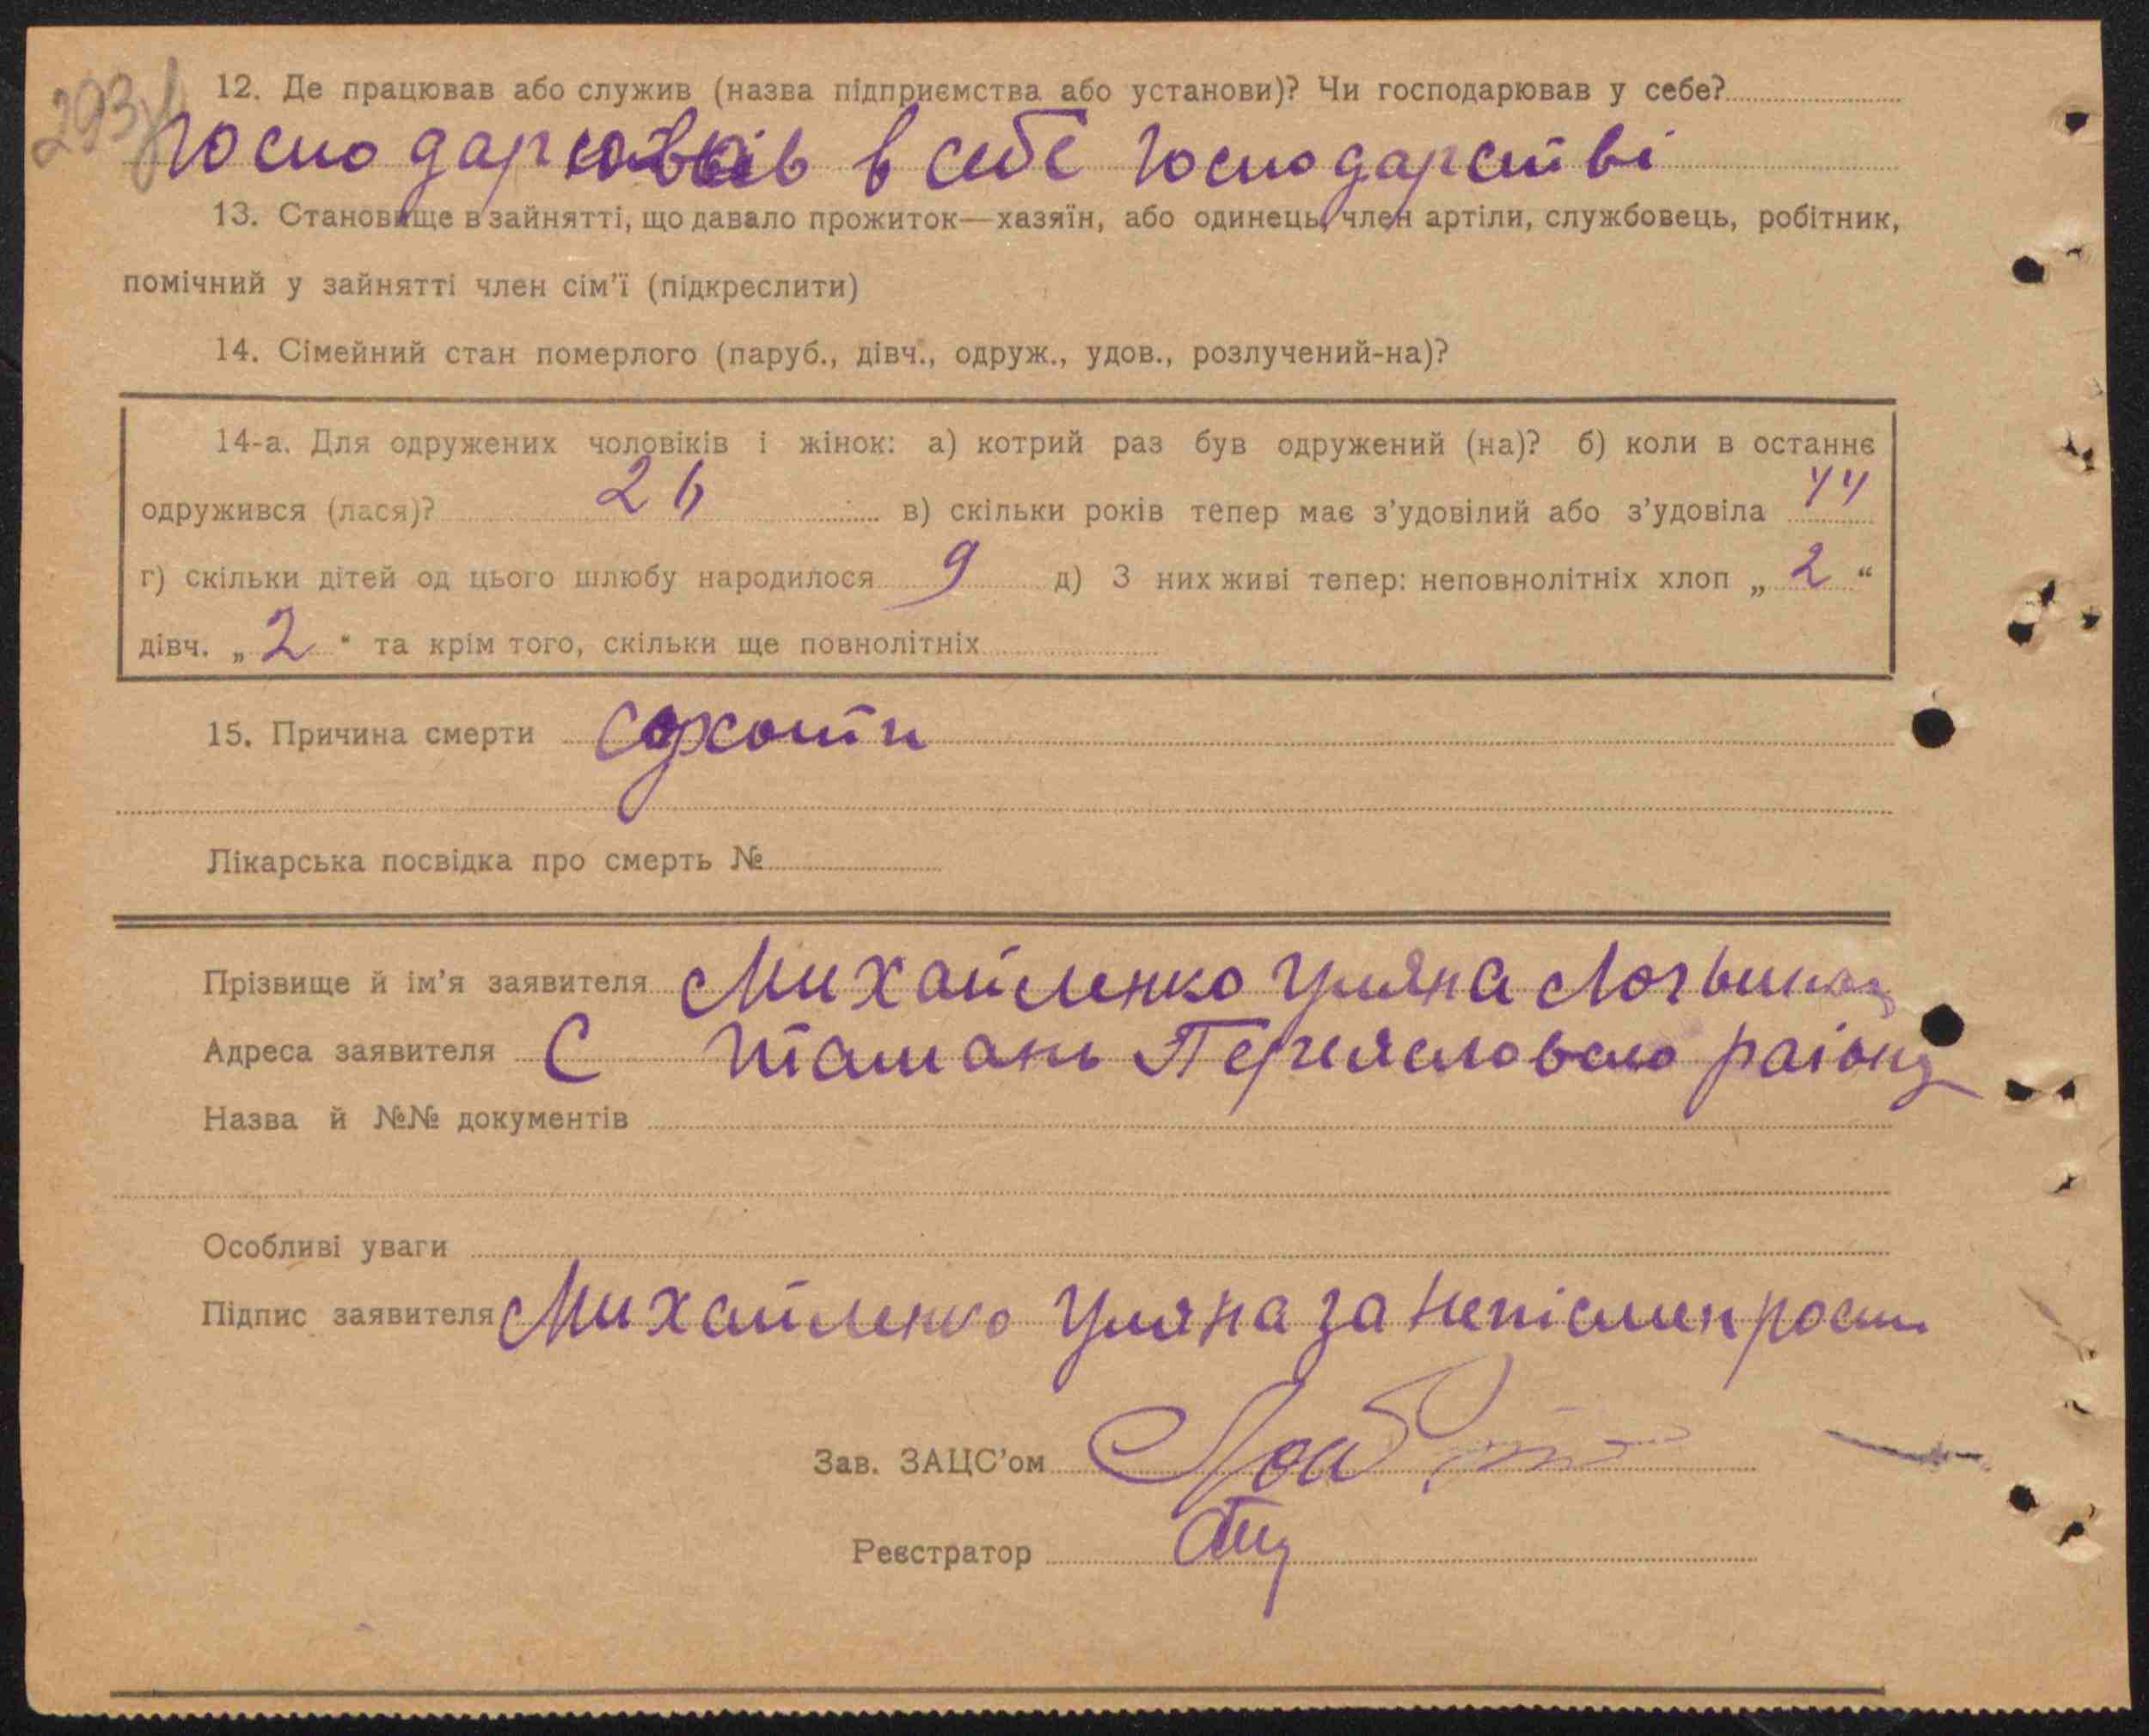 293
12. Де працював або служив (назва підприємства або установи)? Чи господарював у себе?
в себе господарстві
13. Становище в зайнятті, що давало прожиток—хазяїн, або одинець, член артіли, службовець, робітник,
помічний у зайнятті член сім'ї (підкреслити)
14. Сімейний стан померлого (паруб., дівч., одруж., удов., розлучений-на)?
14-а. Для одружених чоловіків і жінок: а) котрий раз був одружений (на)? б) коли в останнє
одружився (лася)? в) скільки років тепер має з'удовілий або з'удовіла 44
г) скільки дітей од цього шлюбу народилося 9 д) З них живі тепер: неповнолітніх хлоп „ 2 “
дівч. „ 2 “ та крім того, скільки ще повнолітніх
15. Причина смерти сохоти
Лікарська посвідка про смерть №
Прізвище й ім'я заявителя Михайленко Уляна
Адреса заявителя С Ташань Переясловско району
Назва й №№ документів
Особливі уваги
Підпис заявителя Михайленко Уляна за
Зав. ЗАЦС'ом
Реєстратор